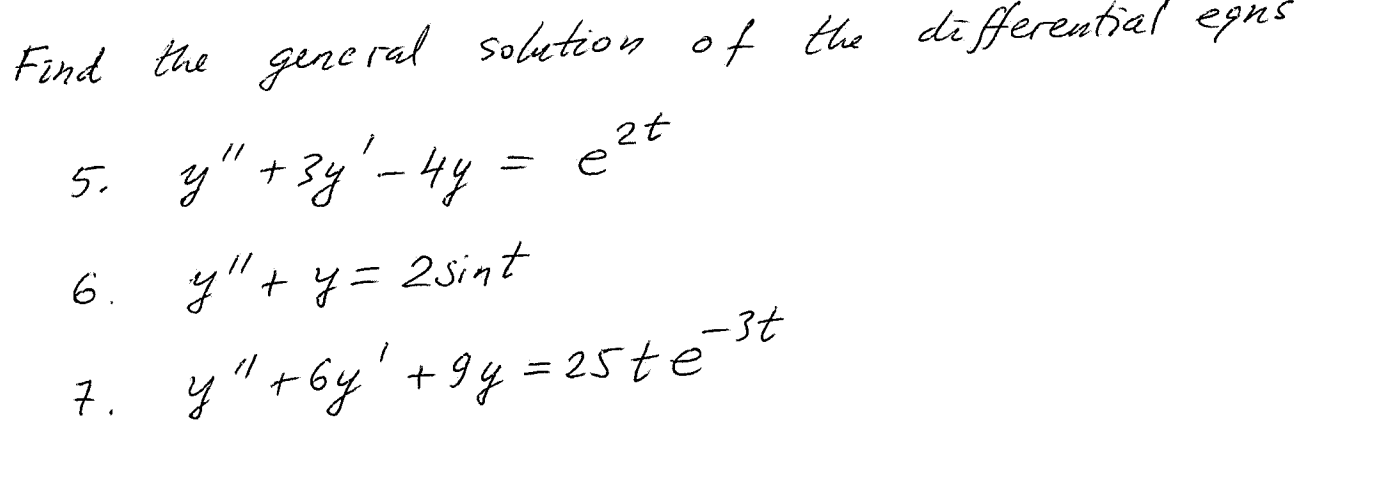 Find the general solution of the differential eqns
5. y'' + 3y' - 4y = e^{2t}
6. y'' + y = 2sint
7. y'' + 6y' + 9y = 25te^{-3t}